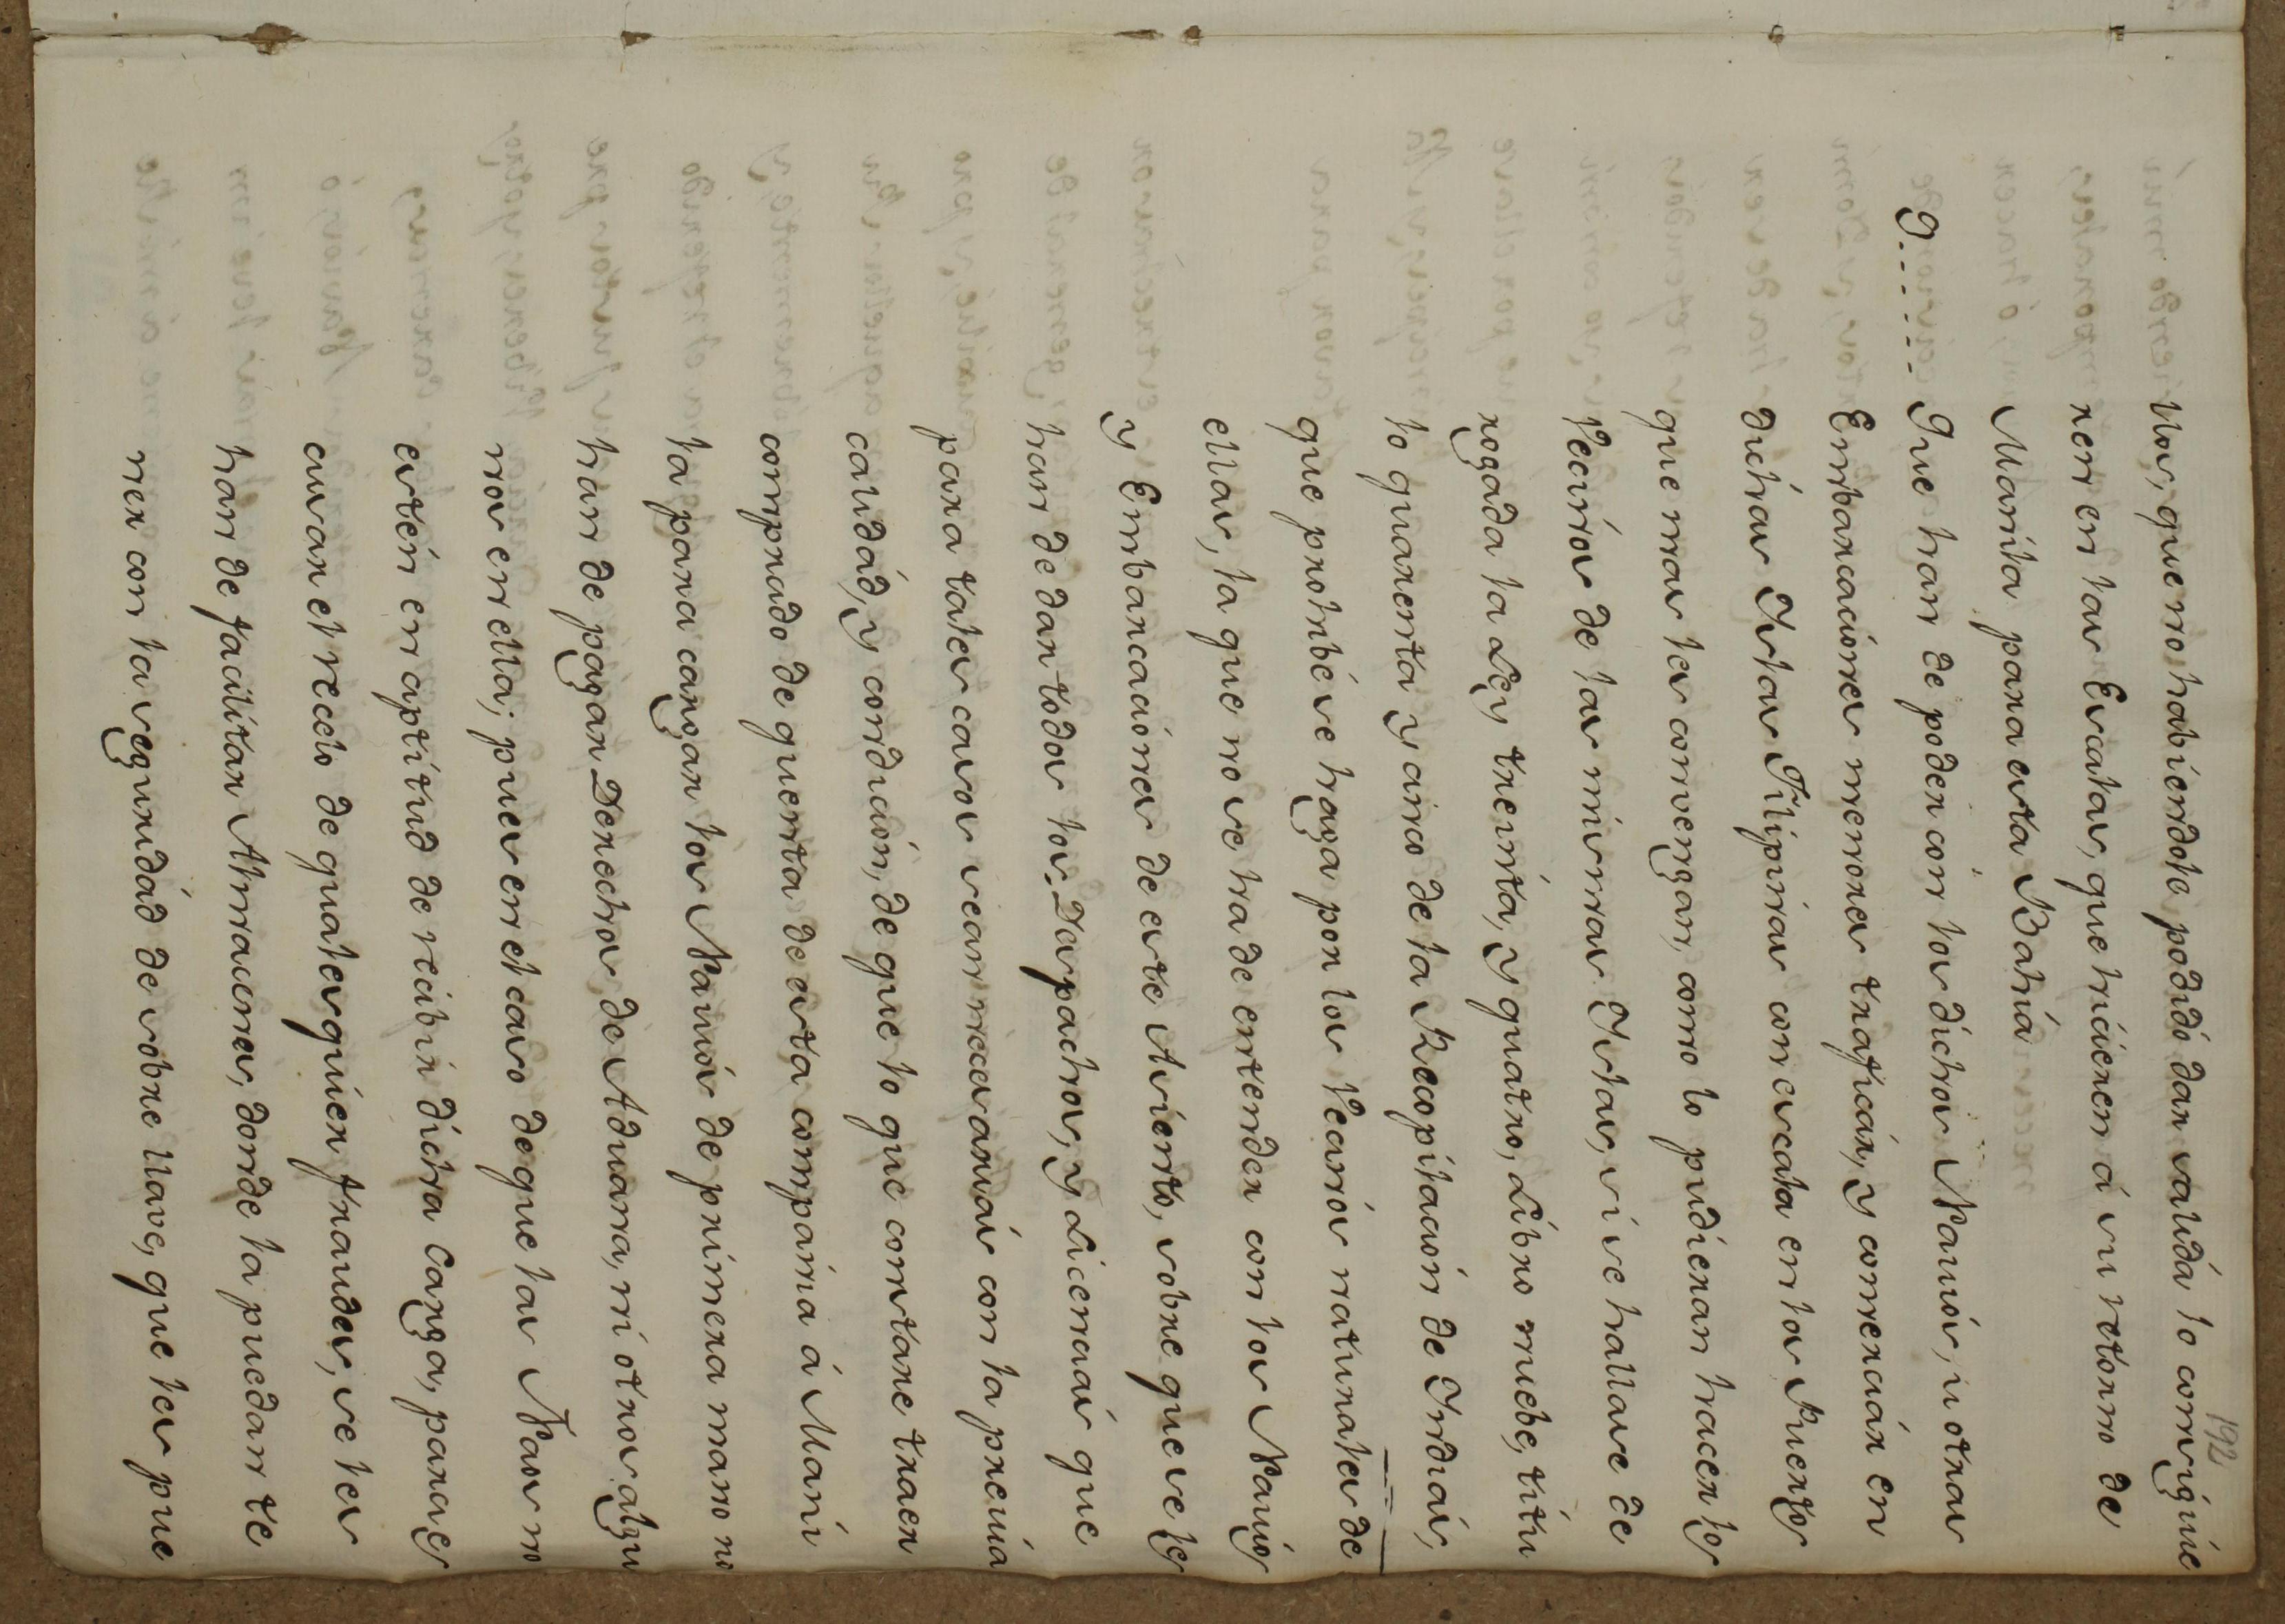 192
llos, que no habiendole podido dar salida lo consiguie
ren en las Escalas, que hicieren á su retorno de
Manila para esta Bahia
9..... Que han de poder con los dichos Navios, u otras
Embarcaciones menores traficár, y comerciár en
dichas Islas Filipinas con escala en los Puertos
que mas les convengan, como lo pudieran hacer los
Vecinos de las mismas Islas, si se hallase de
rogada la Ley treinta, y quatro, Libro nuebe, titu
lo quarenta y cinco de la Recopilacion de Indias,
que prohibe se haga por los Vecinos naturales de
ellas, la que no se ha de entender con los Navios
y Embarcaciones de este Asiento, sobre que se les
han de dar todos los Despachos, y Licencias que
para tales casos sean necesarias con la precisa
calidád, y condicion, de que lo que constare traen
comprado de quenta de esta compañia á Mani
la para cargar los Navios de primera mano no
han de pagar Derechos de Aduana, ni otros algu
nos en ella; pues en el caso de que las Naos no
estén en aptitud de recibir dicha Carga, para es
cusar el recelo de qualesquier fraudes, se les
han de facilitar Almacenes, donde la puedan te
ner con la seguridád de sobre llave, que les pue